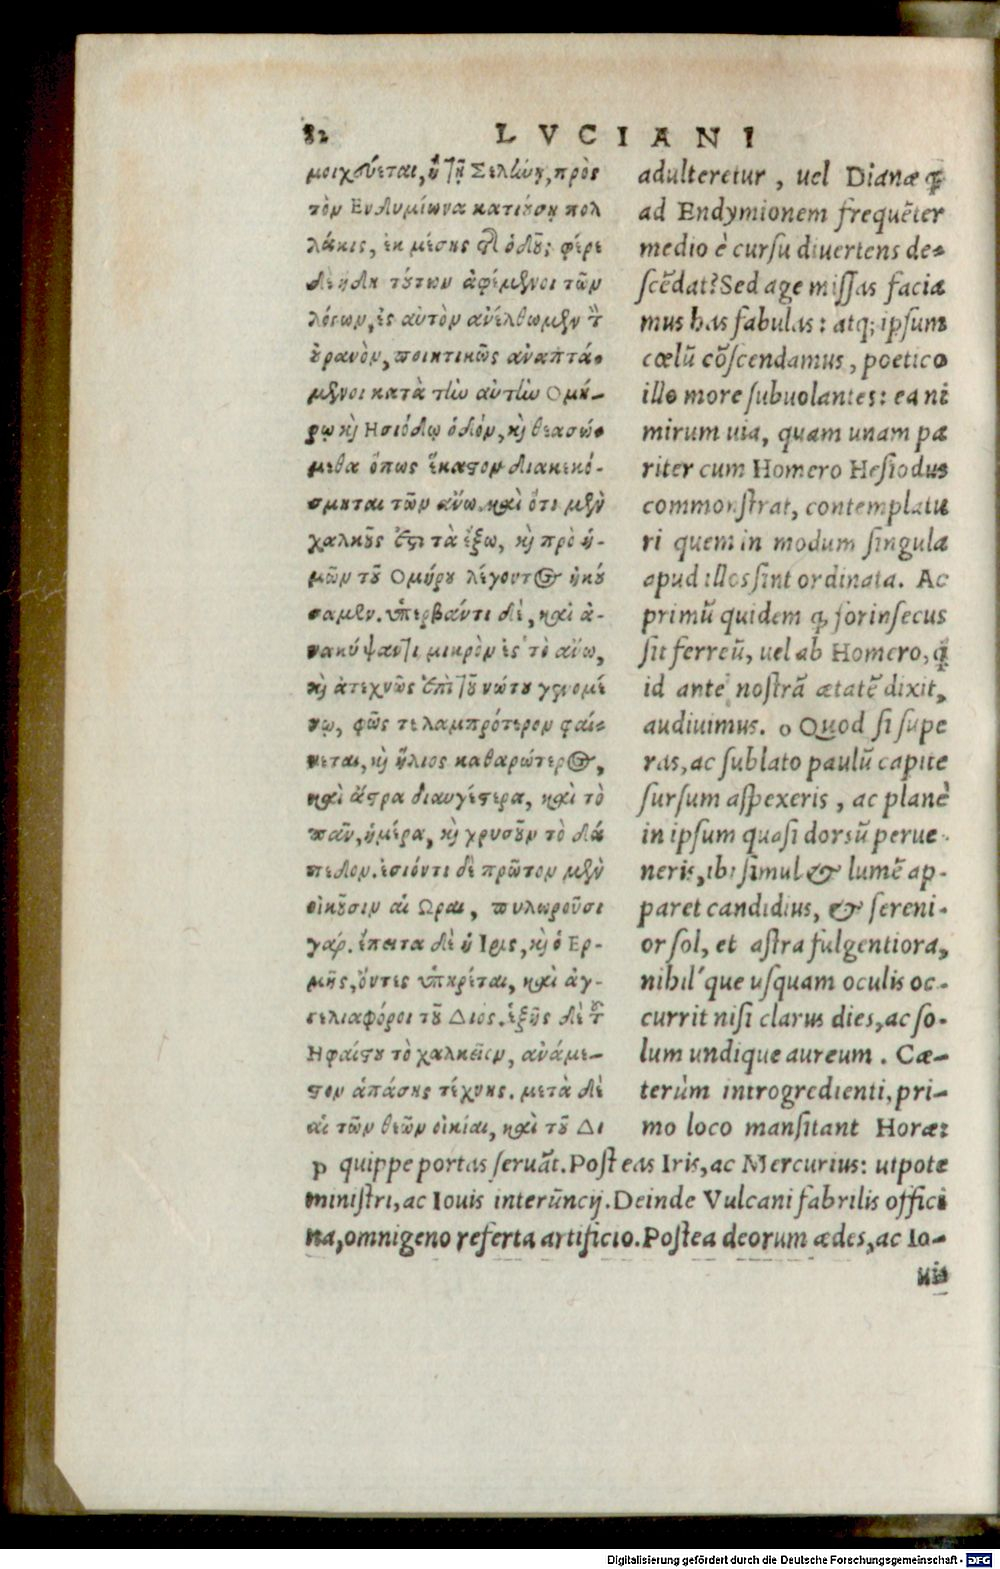 82
LVCIANI
μοιχεύεται, ἢ τῇ Σελήνῃ, πρὸς
τὸν Ενδυμίωνα κατιούσῃ πολ
λάκις, ἐκ μέσης τῆς ὁδοῦ; φέρε
δὲ ἤδη τούτων ἀφέμενοι τῶν
λόγων, ἐς αὐτὸν ἀνέλθωμεν τὸν
οὐρανὸν, ποιητικῶς ἀναπτά-
μενοι κατὰ τὴν αὐτὴν Ομή-
ρῳ καὶ Ησιόδῳ ὁδὸν, καὶ θεασώ-
μεθα ὅπως ἕκαστον διακεκό-
σμηται τῶν ἄνω. καὶ ὅτι μὲν
χαλκοῦς ἐστι τὰ ἔξω, καὶ πρὸ ἡ-
μῶν τοῦ Ομήρου λέγοντος ἠκού
σαμεν. ὑπερβάντι δὲ, καὶ ἀ-
νακύψαντι μικρὸν ἐς τὸ ἄνω,
καὶ ἀτεχνῶς ἐπὶ τοῦ νώτου γενομέ
νῳ, φῶς τε λαμπρότερον φαί-
νεται, καὶ ἥλιος καθαρώτερος,
καὶ ἄστρα διαυγέστερα, καὶ τὸ
πᾶν, ἡμέρα, καὶ χρυσοῦν τὸ δά
πεδον. ἐσιόντι δὲ πρῶτον μὲν
οἰκοῦσιν αἱ Ωραι, πυλωροῦσι
γάρ. ἔπειτα δὲ ἡ Ιρις, καὶ ὁ Ερ-
μῆς, ὄντες ὑπηρέται, καὶ ἀγ-
γελιαφόροι τοῦ Διος. ἑξῆς δὲ τοῦ
Ηφαίστου τὸ χαλκεῖον, ἀνάμε-
στον ἁπάσης τέχνης. μετὰ δὲ
αἱ τῶν θεῶν οἰκίαι, καὶ τοῦ Δι
adulteretur, uel Dianæ ꝙ
ad Endymionem frequẽter
medio è cursu diuertens de-
scẽdat? Sed age missas facia
mus has fabulas: atq; ipsum
cœlũ cõscendamus, poetico
illo more subuolantes: ea ni
mirum uia, quam unam pa
riter cum Homero Hesiodus
commonstrat, contemplatu
ri quem in modum singula
apud illos sint ordinata. Ac
primũ quidem ꝙ forinsecus
sit ferreũ, uel ab Homero, ꝗ
id ante nostrã ætatẽ dixit,
audiuimus. o Quod si supe
ras, ac sublato paulũ capite
sursum aspexeris, ac planè
in ipsum quasi dorsũ perue-
neris, ibi simul & lumẽ ap-
paret candidius, & sereni-
or sol, et astra fulgentiora,
nihil´que usquam oculis oc-
currit nisi clarus dies, ac so-
lum undique aureum. Cæ-
terùm introgredienti, pri-
mo loco mansitant Horæ:
p quippe portas seruãt. Post eas Iris, ac Mercurius: utpote
ministri, ac Iouis interũncij. Deinde Vulcani fabrilis offici
na, omnigeno referta artificio. Postea deorum ædes, ac Io-
uis
Digitalisierung gefördert durch die Deutsche Forschungsgemeinschaft - DFG